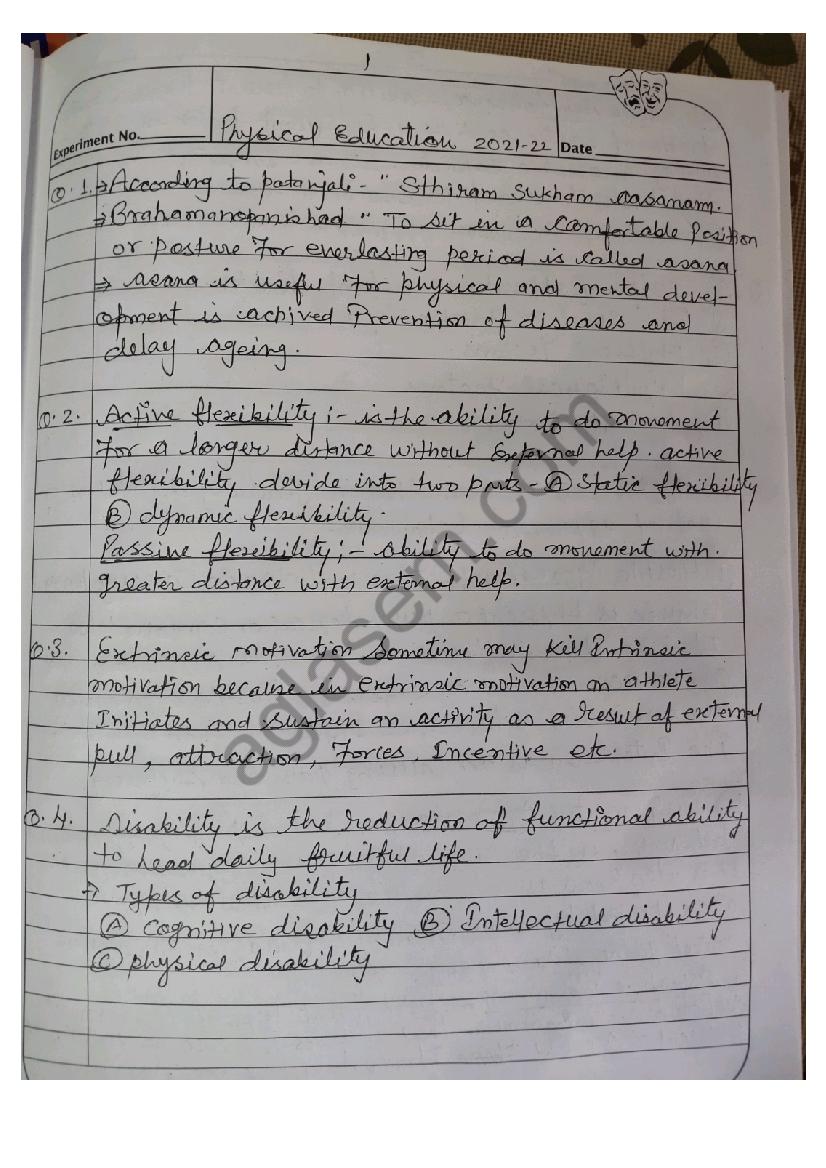 1
Experiment No.
Physical Education 2021-22
Date
Q. 1. → According to patanjali - " Sthiram Sukham aasanam.
→ Brahamanopanishad " To sit in a Comfortable Position
or posture for everlasting period is called asana
→ asana is useful for physical and mental devel-
opment is achived Prevention of diseases and
delay ageing.
Q. 2. Active flexibility :- is the ability to do movement
for a longer distance without External help. active
flexibility devide into two parts - (A) Static flexibility
(B) dynamic flexibility.
Passive flexibility :- ability to do movement with.
greater distance with external help.
Q. 3. Extrinsic motivation Sometime may Kill Intrinsic
motivation because in extrinsic motivation an athlete
Initiates and sustain an activity as a result of external
pull, attraction, Forces, Incentive etc.
Q. 4. Disability is the reduction of functional ability
to lead daily fruitful life.
→ Types of disability
(A) Cognitive disability (B) Intellectual disability
(C) physical disability
aglasem.com